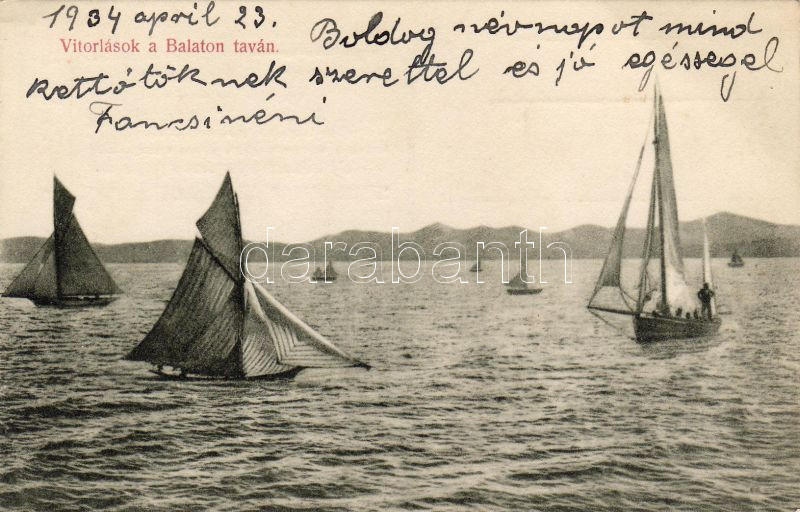 1934 april 23.
Vitorlások a Balaton taván.
Boldog névnapot mind
kettőtöknek szerettel és jó egéssegel
Fancsinéni
darabanth